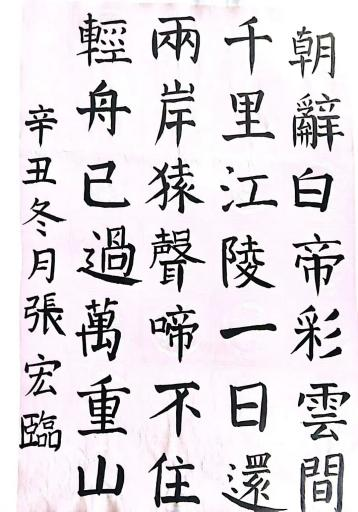 朝辭白帝彩雲間
千里江陵一日還
兩岸猿聲啼不住
輕舟已過萬重山
辛丑冬月張宏臨